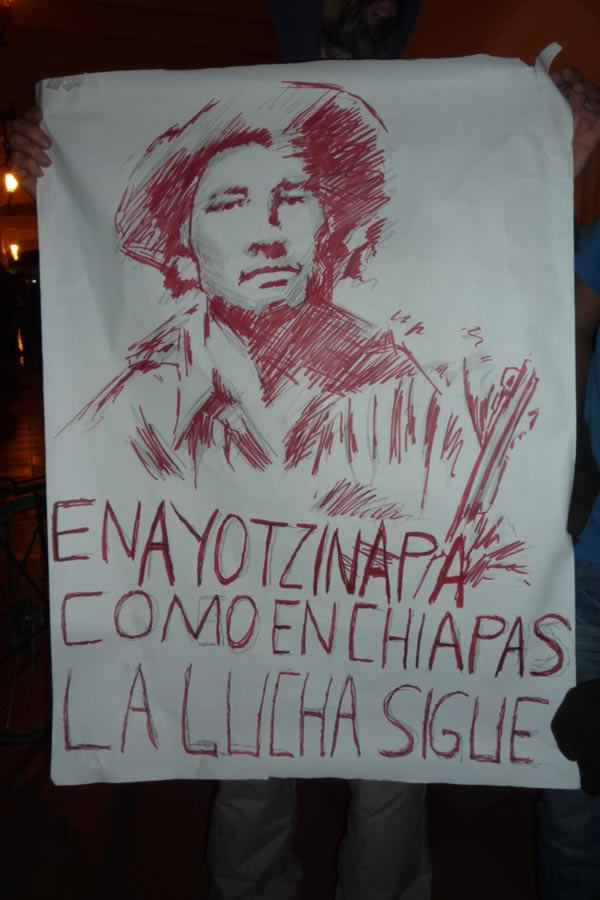 EN AYOTZINAPA
COMO EN CHIAPAS
LA LUCHA SIGUE